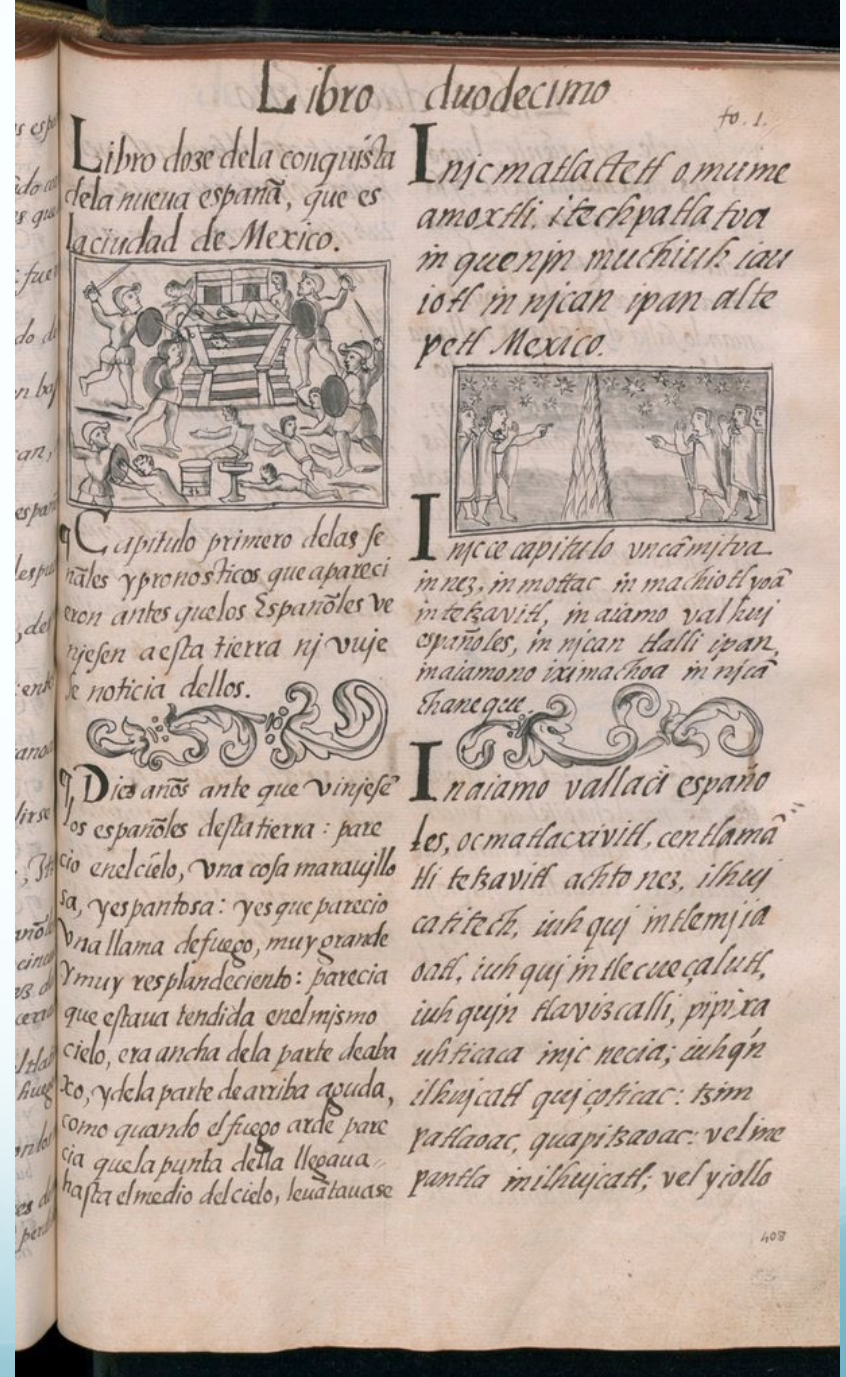 Libro duodecimo
fo. 1.
Libro doze dela conquista
dela nueua españã, que es
la ciudad de Mexico.
¶ Capitulo primero delas se
ñales y pronosticos que apareci
eron antes quelos Españoles ve
njesen a esta tierra nj vuje
se noticia dellos.
¶, Diez años ante que vinjesẽ
los españoles desta tierra: pare
cio enel cielo, vna cosa marauillo
sa, y espantosa: y es que parecio
vna llama de fuego, muy grande
y muy resplandeciento: parecia
que estaua tendida enel mjsmo
cielo, era ancha dela parte de aba
xo, y dela parte de arriba aguda,
como quando el fuego arde pare
cia que la punta della llegaua
hasta el medio del cielo, leuãtauase
Injc matlactetl omume
amoxtli, itechpatlatoa
in quenjn muchiuh iau
iotl in njcan ipan alte
petl Mexico.
Injc ce capitulo vncã mjtoa
in nez, in mottac in machiotl yoã
in tetzavitl, in aiamo valhuj
españoles, in njcan tlalli ipan,
in aiamono iximachoa in njcã
chaneque.
In aiamo vallaci españo
les, oc matlacxivitl, centlamã
tli tetzavitl achto nez, ilhuj
catitech, iuhquj in tlemjia
oatl, iuhquj in tlecueçalutl,
iuhqujn tlavizcalli, pipixa
uhticaca injc necia; iuhqn
ilhujcatl qujçoticac: tzim
patlaoac, quapitzaoac: vel ine
pantla in ilhujcatl; vel yiollo
408